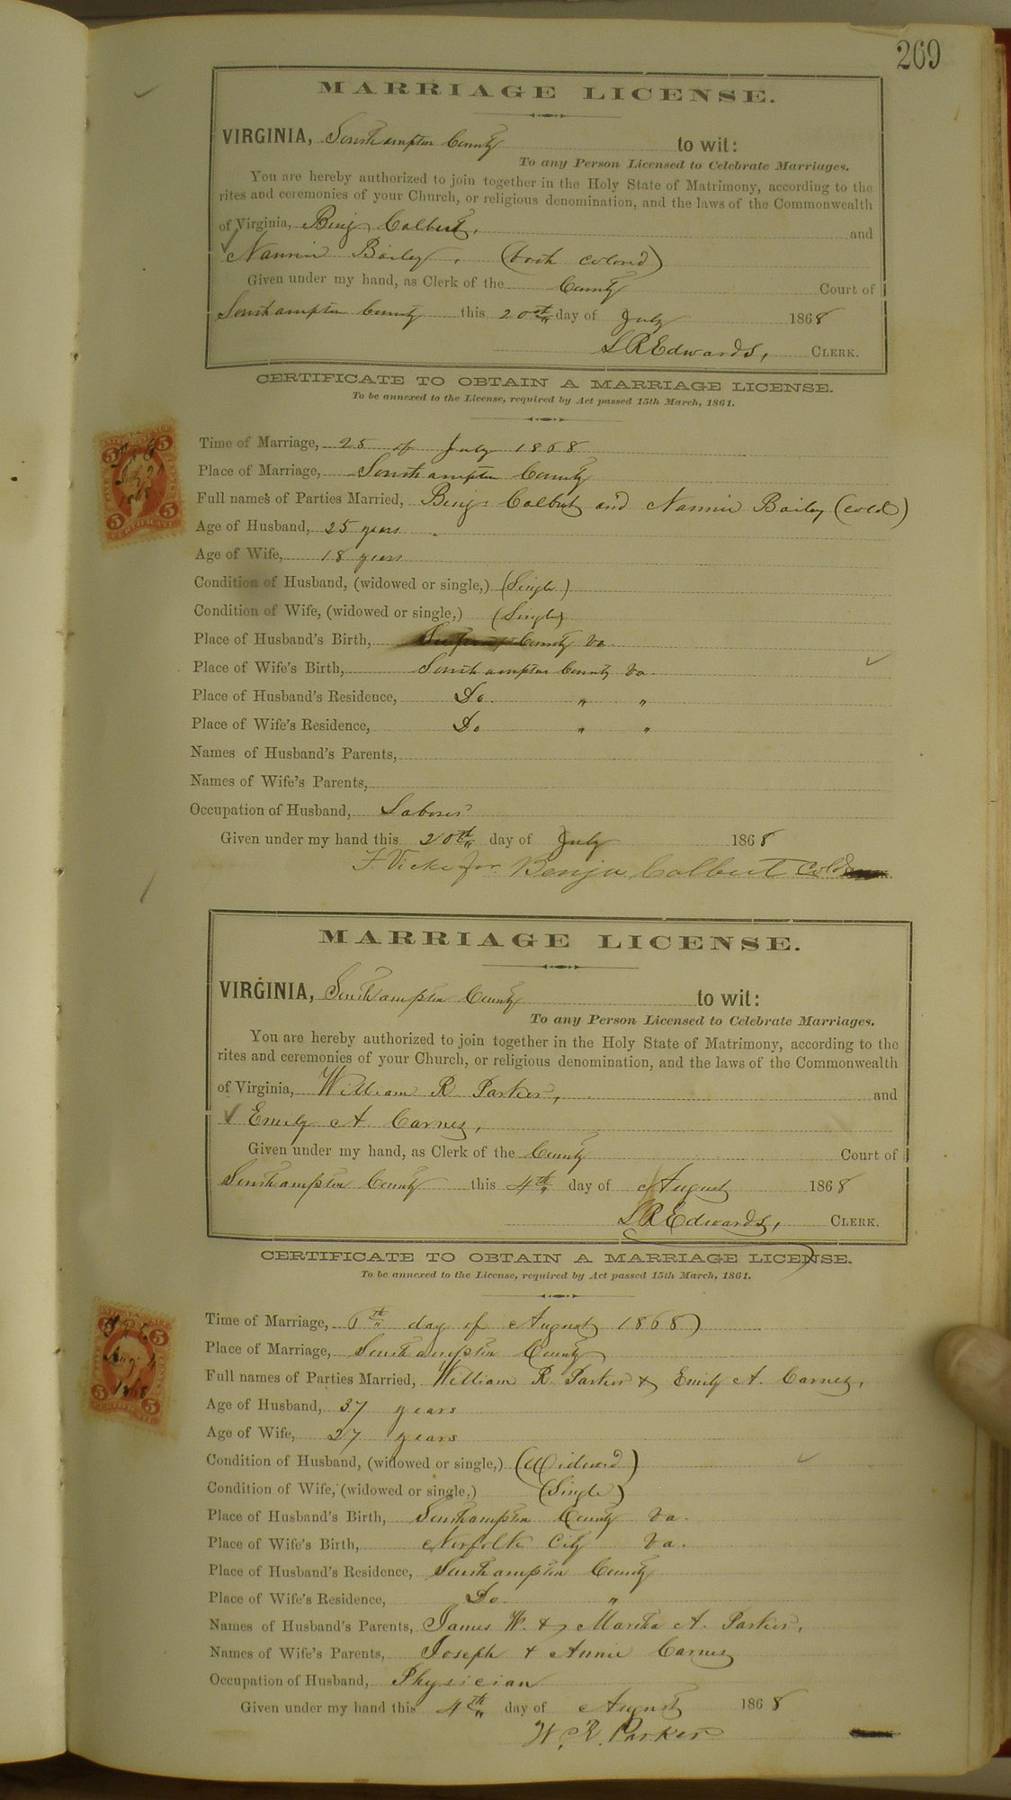 269
MARRIAGE LICENSE.
VIRGINIA, Southampton County to wit:
To any Person Licensed to Celebrate Marriages.
You are hereby authorized to join together in the Holy State of Matrimony, according to the
rites and ceremonies of your Church, or religious denomination, and the laws of the Commonwealth
of Virginia, Benj Colbert, and
Nannie Bailey, (both colored)
Given under my hand, as Clerk of the County Court of
Southampton County this 20th day of July 1868
L R Edwards, CLERK.
CERTIFICATE TO OBTAIN A MARRIAGE LICENSE.
To be annexed to the License, required by Act passed 15th March, 1861.
Time of Marriage, 25 of July 1868
Place of Marriage, Southampton County
Full names of Parties Married, Benj Colbert and Nannie Bailey (cold)
Age of Husband, 25 years
Age of Wife, 18 years
Condition of Husband, (widowed or single,) (Single)
Condition of Wife, (widowed or single,) (Single)
Place of Husband's Birth, County Va
Place of Wife's Birth, Southampton County Va.
Place of Husband's Residence, Do " "
Place of Wife's Residence, Do " "
Names of Husband's Parents,
Names of Wife's Parents,
Occupation of Husband, Laborer
Given under my hand this 20th day of July 1868
for Benja Colbert Cold
MARRIAGE LICENSE.
VIRGINIA, Southampton County to wit:
To any Person Licensed to Celebrate Marriages.
You are hereby authorized to join together in the Holy State of Matrimony, according to the
rites and ceremonies of your Church, or religious denomination, and the laws of the Commonwealth
of Virginia, William R Parker, and
Emily A. Carney,
Given under my hand, as Clerk of the County Court of
Southampton County this 4th day of August 1868
L R Edwards, CLERK.
CERTIFICATE TO OBTAIN A MARRIAGE LICENSE.
To be annexed to the License, required by Act passed 15th March, 1861.
Time of Marriage, 6th day of August 1868
Place of Marriage, Southampton County
Full names of Parties Married, William R. Parker & Emily A. Carney,
Age of Husband, 37 years
Age of Wife, 27 years
Condition of Husband, (widowed or single,) (Widowed)
Condition of Wife, (widowed or single,) (Single)
Place of Husband's Birth, Southampton County Va.
Place of Wife's Birth, Norfolk City Va.
Place of Husband's Residence, Southampton County
Place of Wife's Residence, Do "
Names of Husband's Parents, James W. & Martha A. Parker,
Names of Wife's Parents, Joseph & Annie Carney
Occupation of Husband, Physician
Given under my hand this 4th day of August 1868
W. R. Parker